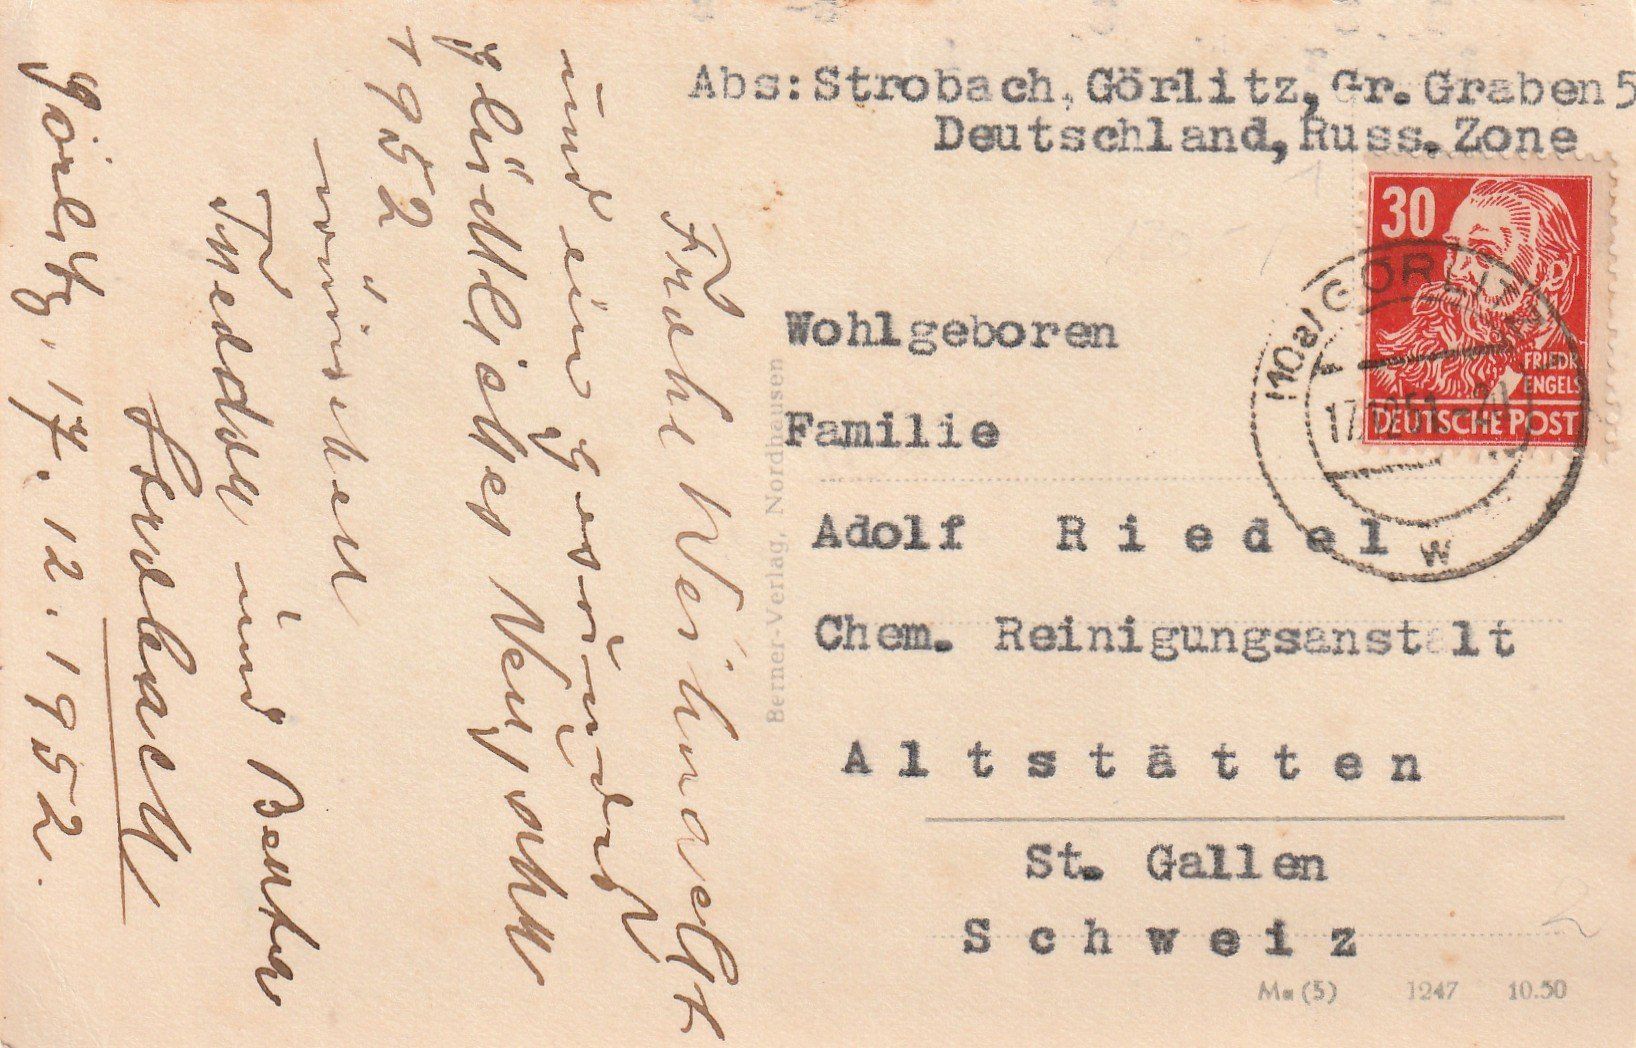 Abs: Strobach, Görlitz, Gr. Graben 5
Deutschland, Russ. Zone
30
FRIEDR.
ENGELS
DEUTSCHE POST
(10a) GÖRLITZ
17.12.51
w
Wohlgeboren
Familie
Adolf Riedel
Chem. Reinigungsanstalt
Altstätten
St. Gallen
Schweiz
Ma (5) 1247 10.50
Berner-Verlag, Nordhausen
Frohe Weihnacht
und ein gesundes
glückliches Neujahr
1952
wünschen
und Bertha
Strobach
Görlitz, 17. 12. 1952.